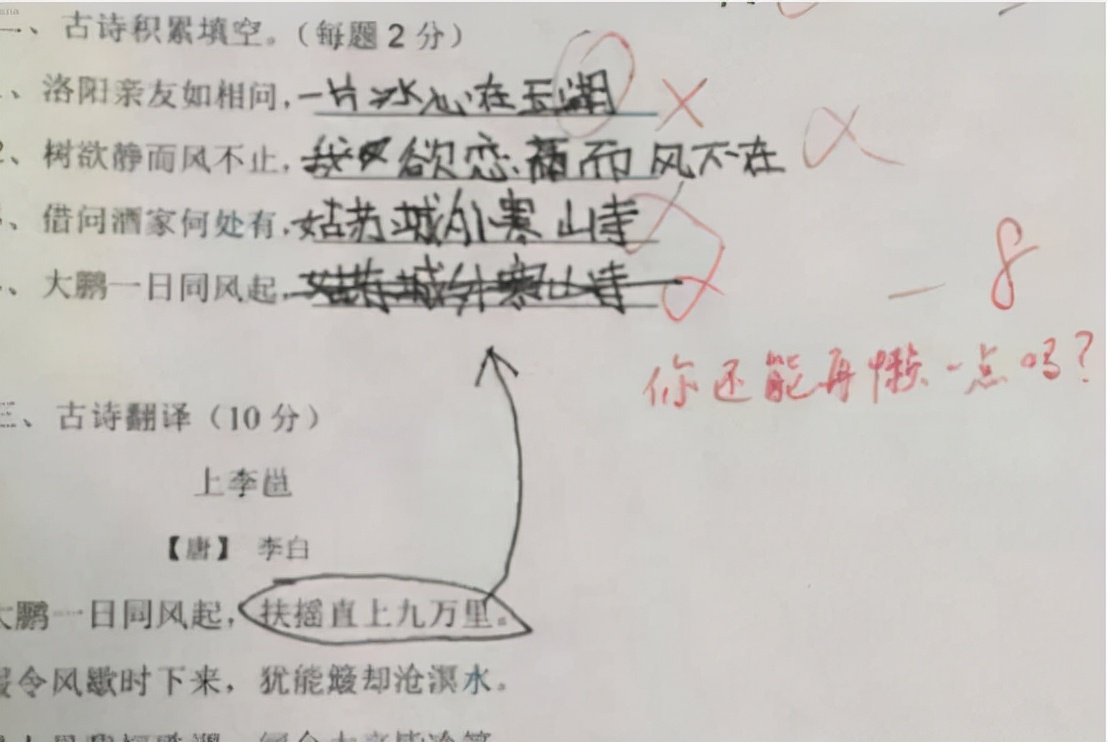 古诗积累填空。（每题2分）
、洛阳亲友如相问，一片冰心在玉湖
、树欲静而风不止，我又欲恋而风不在
、借问酒家何处有，姑苏城外寒山寺
、大鹏一日同风起，姑苏城外寒山寺
-8
你还能再懒一点吗？
三、古诗翻译（10分）
上李邕
【唐】 李白
大鹏一日同风起，扶摇直上九万里。
假令风歇时下来，犹能簸却沧溟水。